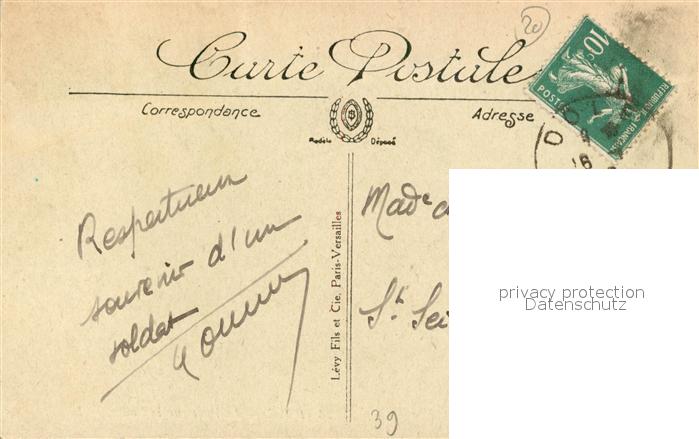 20
Carte Postale
Correspondance
Adresse
Modèle Déposé
10c
POSTES
REPUBLIQUE FRANÇAISE
DO
16
Respectueux
souvenir d'un
soldat
Madᵉ
Sᵗ Sei
Lévy Fils et Cie, Paris-Versailles
39
privacy protection
Datenschutz